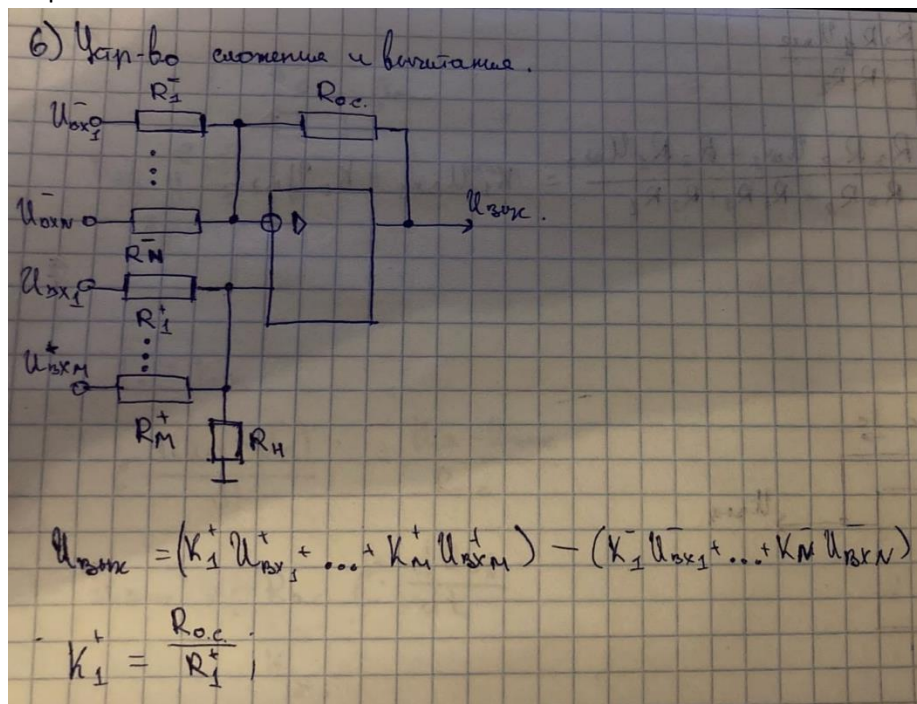 6) Устр-во сложения и вычитания.
R₁⁻
Rо.с.
U⁻вх1
U⁻вхN
Uвых.
R⁻N
Uвх1
R₁⁺
U⁺вхM
R⁺M
Rн
Uвых = (K₁⁺ U⁺вх1 + ... + K⁺M U⁺вхM) − (K₁⁻ U⁻вх1 + ... + K⁻N U⁻вхN)
K₁⁺ = Rо.с. / R₁⁺ ;